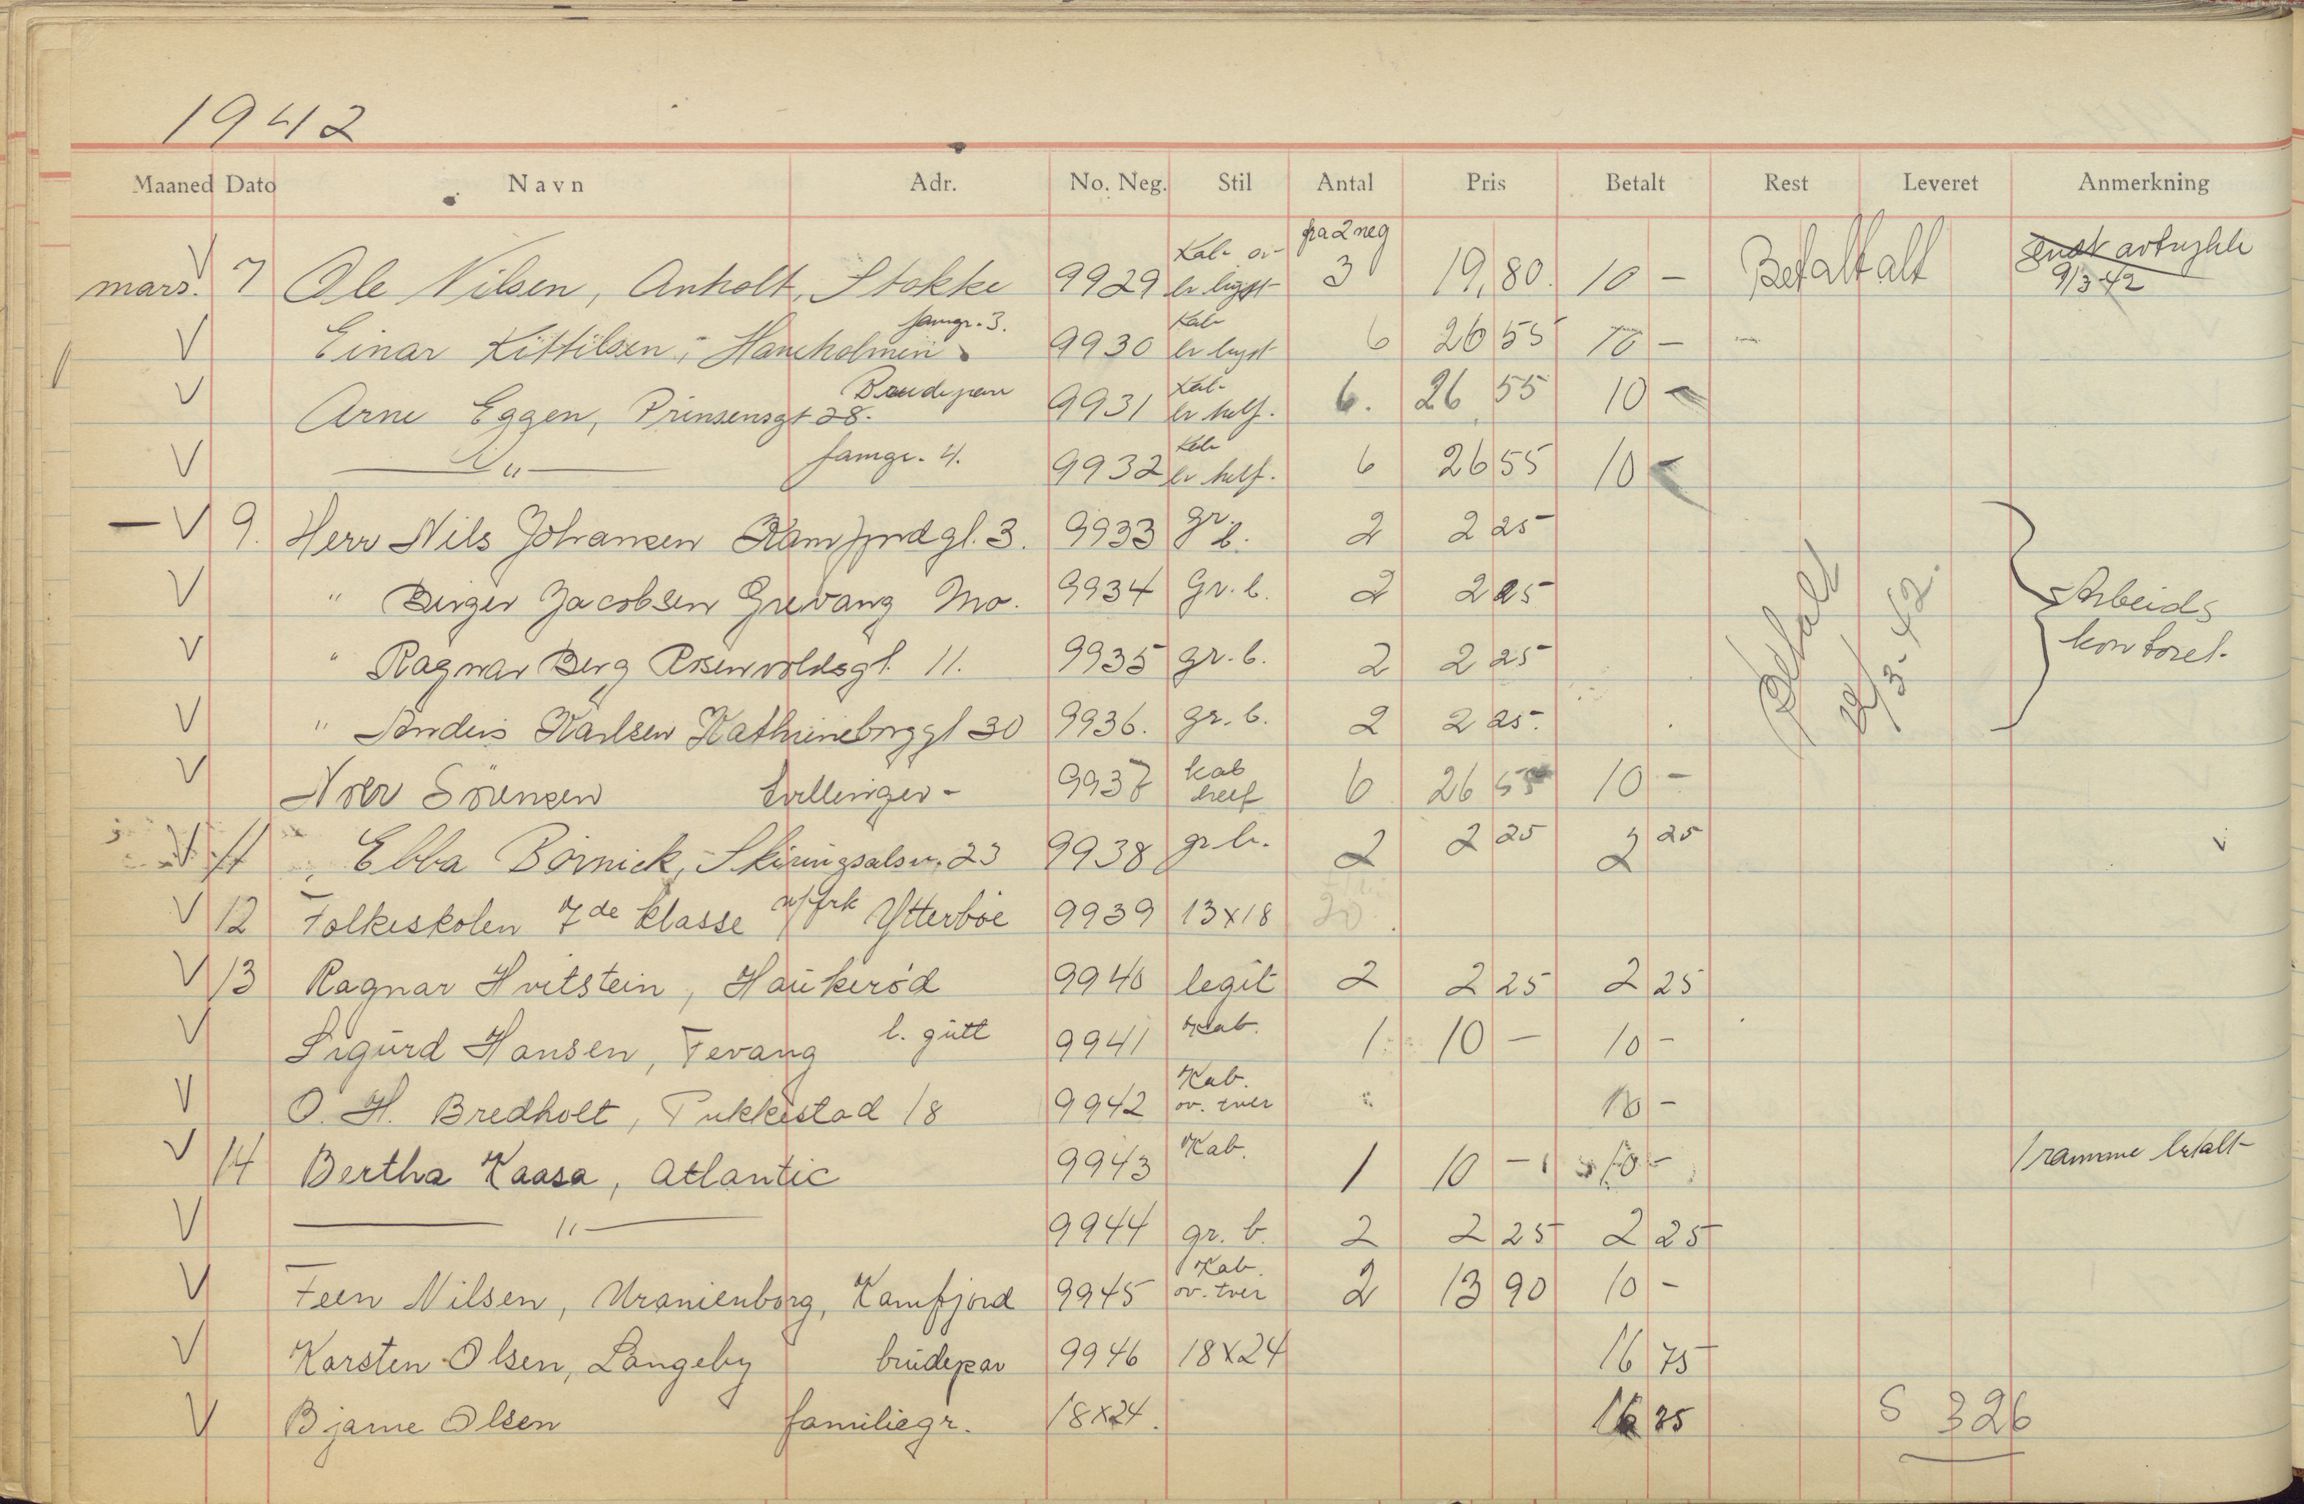 1942
Maaned Dato Navn Adr. No. Neg. Stil Antal Pris Betalt Rest Leveret Anmerkning
fra 2 neg
Kab ov
mars. V 7 Ole Nilsen, Anholt, Stokke 9929 er lyst 3 19,80. 10 - Betalt alt 9/3-42
famgr. 3. Kab
V Einar Kittilsen, Haneholmen 9930 er lyst 6 26 55 10 -
Brudepar Kab
V Arne Eggen, Prinsensgt 28. 9931 er helf. 6. 26 55 10 -
Kab
V — " — famgr. 4. 9932 er helf. 6 26 55 10 -
— V 9. Herr Nils Johansen Kamfjordgt. 3. 9933 gr. b. 2 2 25
V " Birger Jacobsen Grevang Mo. 9934 Gr. b. 2 2 25 Betalt 12/3-42. Arbeids
V " Ragnar Berg Rosenvoldsgt. 11. 9935 gr. b. 2 2 25 kontoret.
V " Anders Karlsen Kathrineborggt 30 9936. gr. b. 2 2 25.
V Iver Sörensen tvillinger - 9937 kab helf 6 26 55 10 -
V 11 Ebba Börnick, Skiringsalsv. 23 9938 gr b. 2 2 25 2 25 v
V 12 Folkeskolen 7de klasse v/frk Ytterböe 9939 13x18 20
V 13 Ragnar Hvitstein, Haukeröd 9940 legit 2 2 25 2 25
V Sigurd Hansen, Fevang l. gutt 9941 Kab. 1 10 - 10 -
Kab.
V O. H. Bredholt, Pukkestad 18 9942 ov. tver 10 -
V 14 Bertha Kaasa, Atlantic 9943 Kab. 1 10 - 10 - 1 ramme betalt
V — " — 9944 gr. b. 2 2 25 2 25
Kab.
V Feen Nilsen, Uranienborg, Kamfjord 9945 ov. tver 2 13 90 10 -
V Karsten Olsen, Langeby brudepar 9946 18x24 16 75
V Bjarne Olsen familiegr. 18x24. 16 75 S 326